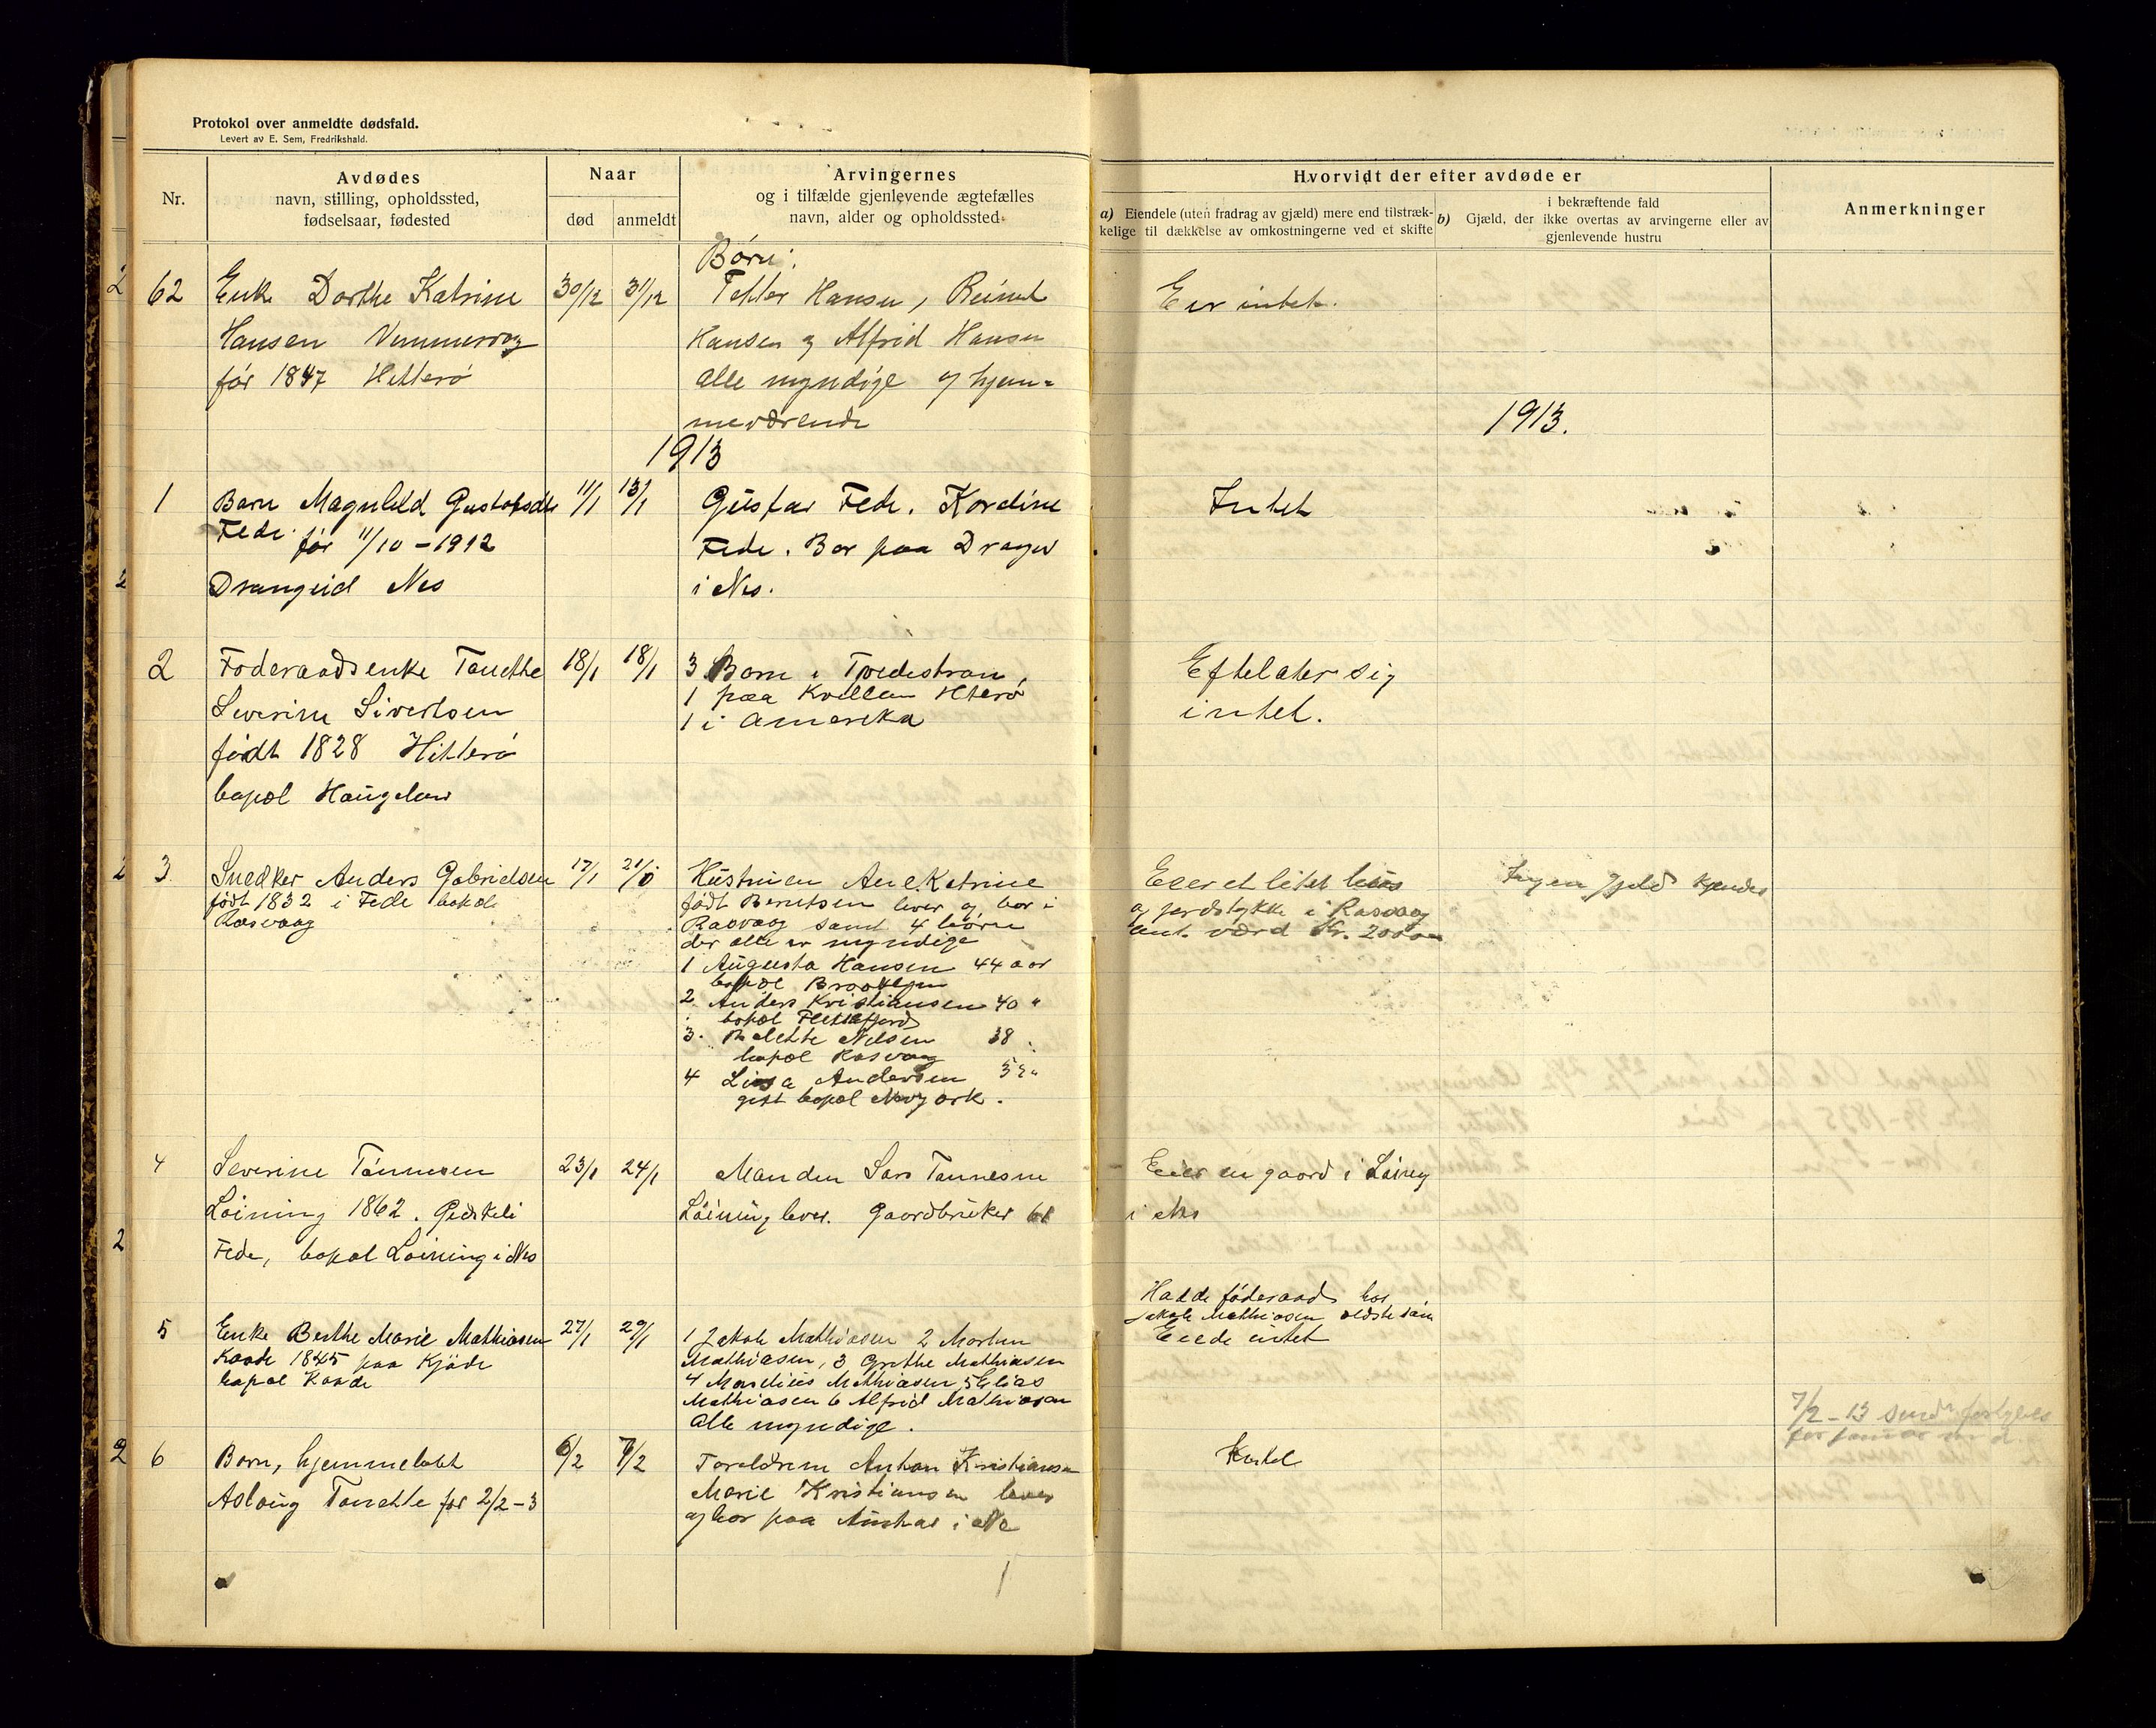 Protokol over anmeldte dødsfald.
Levert av E. Sem, Fredrikshald.
Nr.
Avdødes
navn, stilling, opholdssted,
fødselsaar, fødested
Naar
død
anmeldt
Arvingernes
og i tilfælde gjenlevende ægtefælles
navn, alder og opholdssted
Hvorvidt der efter avdøde er
a) Eiendele (uten fradrag av gjæld) mere end tilstræk-
kelige til dækkelse av omkostningerne ved et skifte
i bekræftende fald
b) Gjæld, der ikke overtas av arvingerne eller av
gjenlevende hustru
Anmerkninger
62
Enke Dorthe Katrine
Hansen
før 1847 Hitterø
30/12
31/12
Børn:
Hansen, Reinert
Hansen og Alfrid Hansen
alle myndige og hjem=
meværende
Eier intet.
1913
1913.
1
Barn Magnhild Gustafsdtr
Fede før 11/10 - 1912
Drangeid Nes
11/1
13/1
Gustav Fede. Kordine
Fede. Bor paa Drangeid
i Nes.
Intet
2
Foderaadsenke Tanethe
Severine Sivertsen
født 1828 Hitterø
bopæl
18/1
18/1
3 Børn i Tvedestran,
1 paa Hiterø
1 i Amerika
Eftelater sig
intet.
3
Snedker Anders Gabrielsen
født 1832 i Fede bopæl
Rasvaag
17/1
Hustruen Ane Katrine
født Berntsen lever og bor i
Rasvaag samt 4 børn
der alle er myndige
1 Augusta Hansen 44 aar
bopæl Brooklyn
2 Anders Kristiansen 40 "
bopæl Flekkefjord
3. Nilsen 38
bopæl Rasvaag
4 Andersen
gift bopæl Nevyork.
Eier et litet hus
og jordstykke i Rasvaag
ant. værd Kr. 2000
Ingen gjeld kjendes
4
Severine Tønnesen
Løining 1862. Gedskeli
Fede, bopæl Løining i Nes
23/1
24/1
Manden Lars Tønnesen
Løining lever. Gaardbruker 61
Eier en gaard i Løining
i Nes
5
Enke Berthe Marie Mathiasen
Kaade 1845 paa Kjøde
bopæl Kaade
27/1
29/1
1 Jakob Mathiasen 2 Morten
Mathiasen, 3 Grethe Mathiasen
4 Mathiasen 5 Elias
Mathiasen 6 Alfrid Mathiasen
alle myndige.
Hadde føderaad hos
Jakob Mathiasen ældste søn
Eiede intet
7/2 - 13
6
Barn, hjemmedøbt
Aslaug Tanette før 2/2 - 3
6/2
7/2
Foreldrene Anton Kristiansen
Marie Kristiansen lever
og bor paa i Nes
Intet